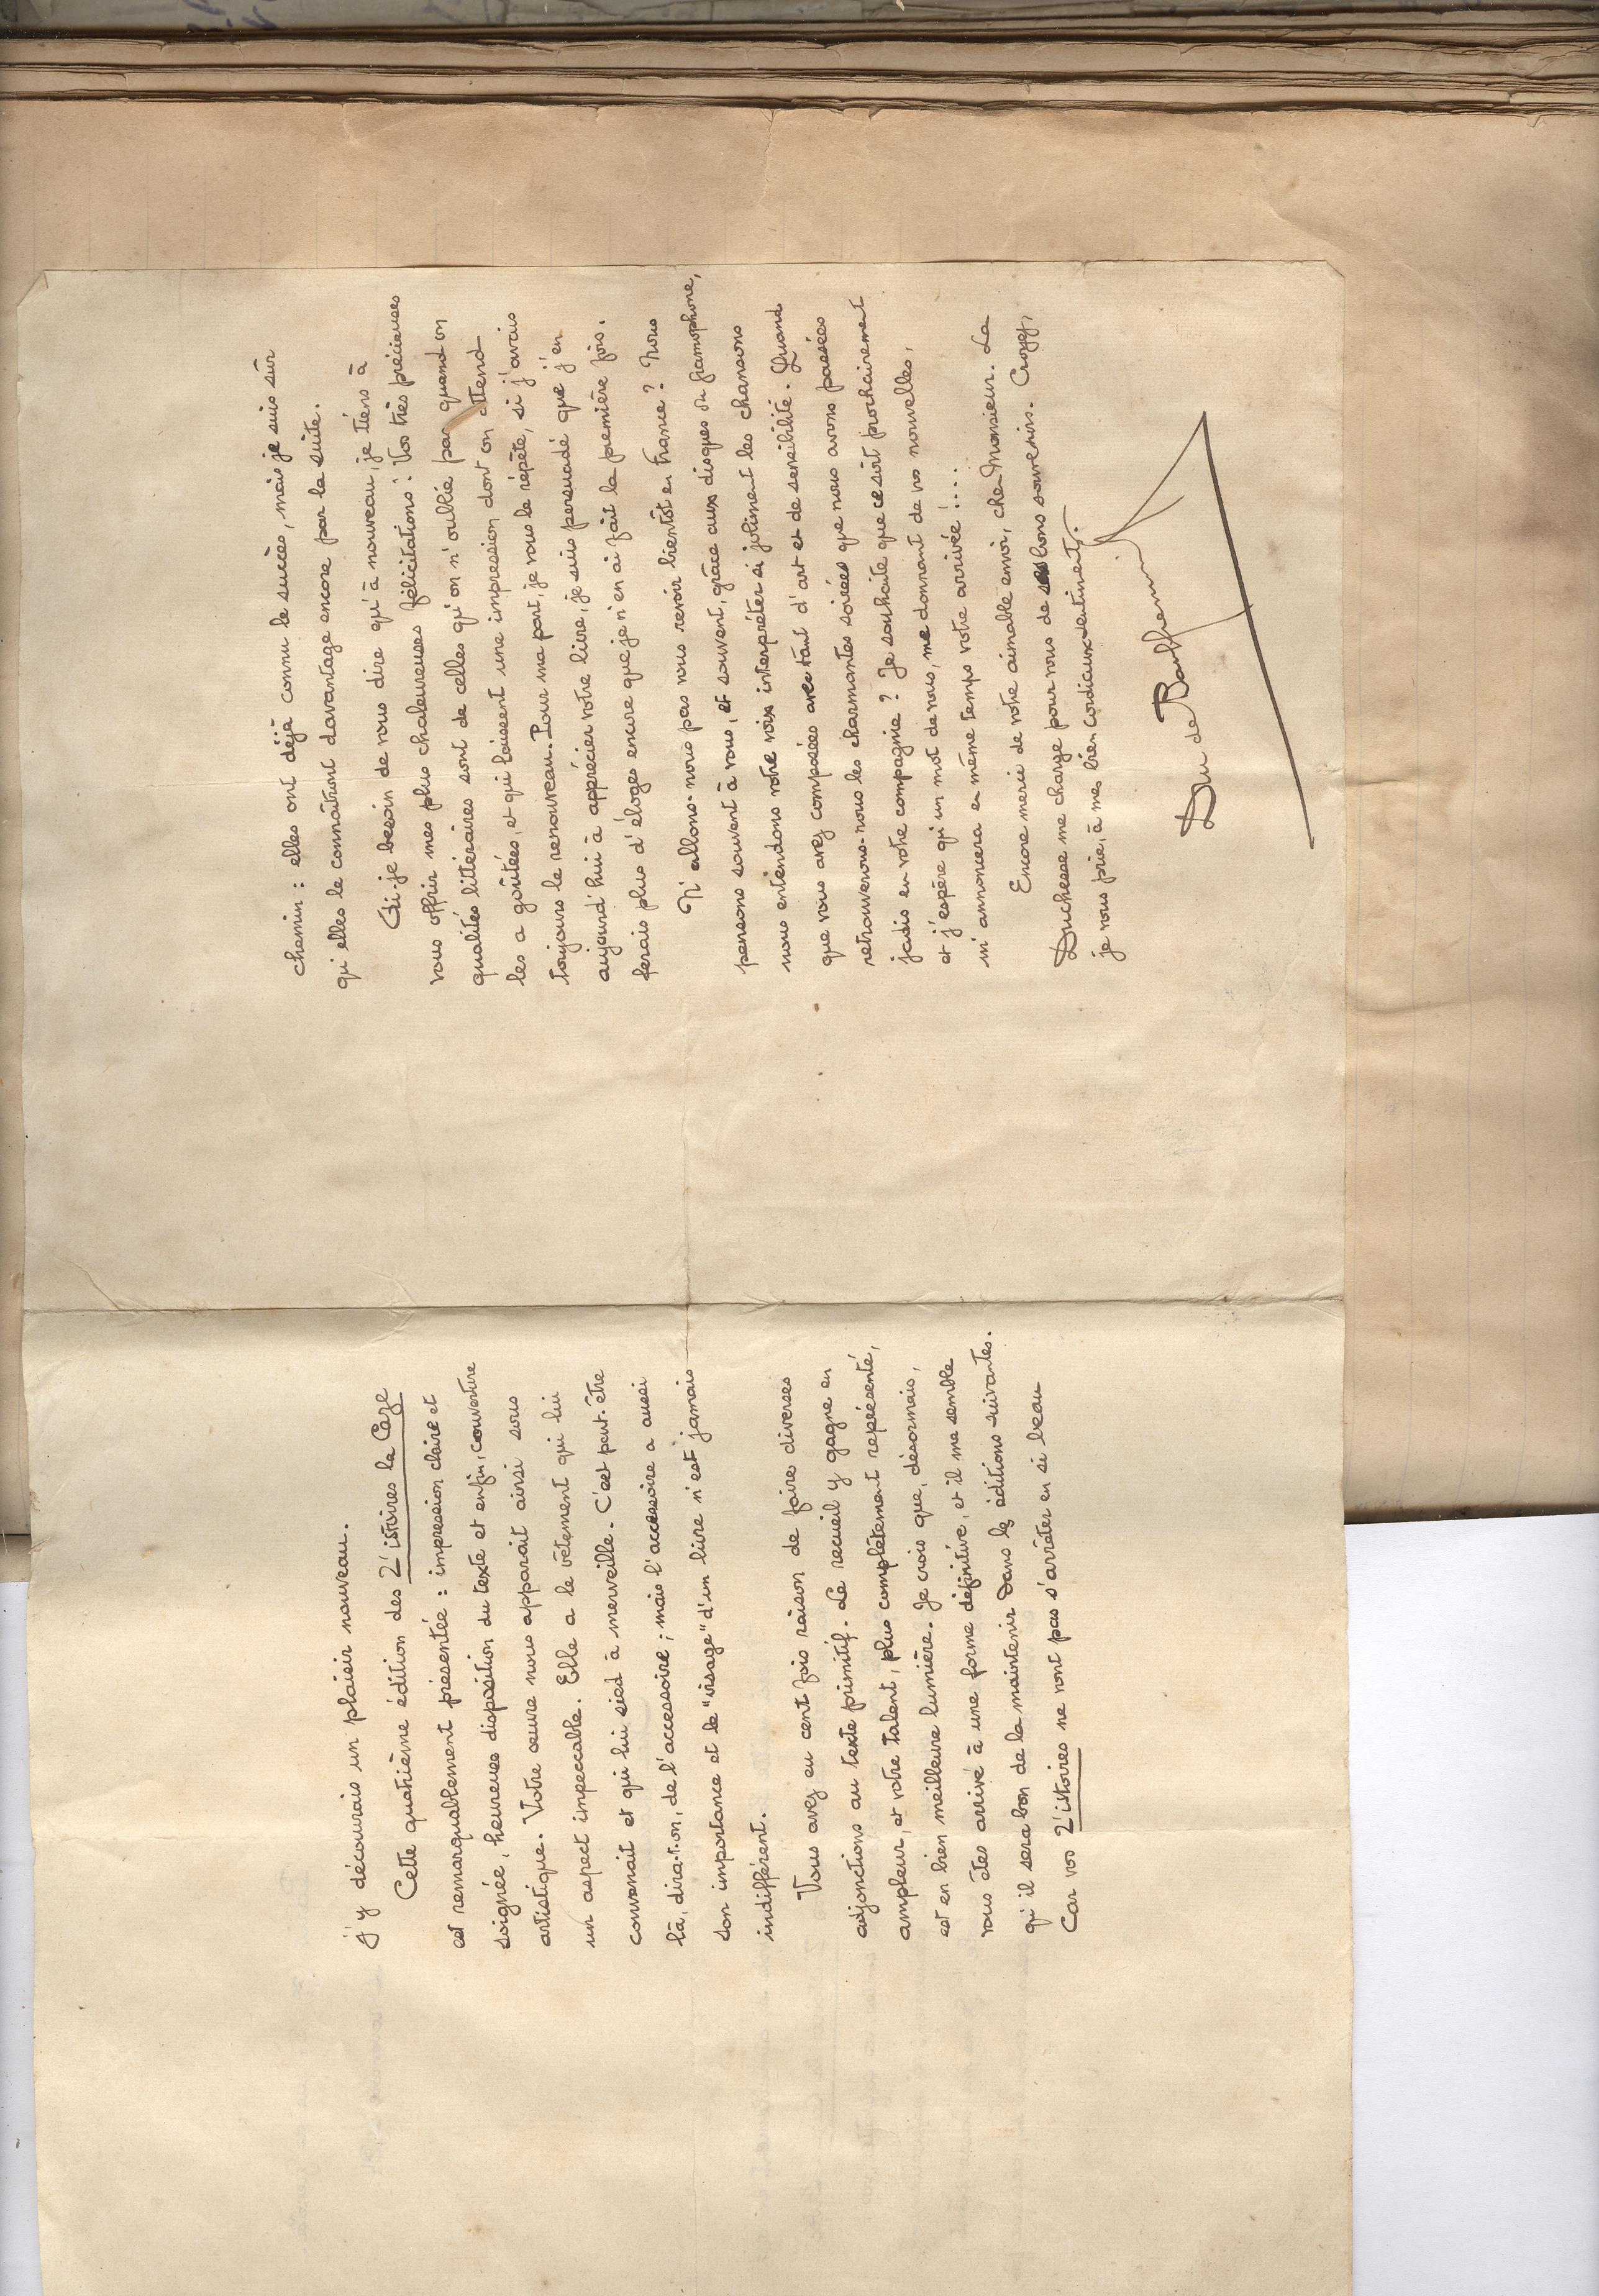 j'y découvrais un plaisir nouveau.
Cette quatrième édition des Z'istoires la Caze
est remarquablement présentée : impression claire et
soignée, heureuse disposition du texte et enfin, couverture
artistique. Votre œuvre nous apparait ainsi sous
un aspect impeccable. Elle a le vêtement qui lui
convenait et qui lui sied à merveille. C'est peut-être
là, dira-t-on, de l'accessoire ; mais l'accessoire a aussi
son importance et le "visage" d'un livre n'est jamais
indifférent.
Vous avez eu cent fois raison de faire diverses
adjonctions au texte primitif. Le recueil y gagne en
ampleur, et votre talent, plus complètement représenté,
est en bien meilleure lumière. Je crois que, désormais,
vous êtes arrivé à une forme définitive, et il me semble
qu'il sera bon de la maintenir dans les éditions suivantes.
Car vos Z'istoires ne vont pas s'arrêter en si beau
chemin : elles ont déjà connu le succès, mais je suis sûr
qu'elles le connaîtront davantage encore par la suite.
Ai-je besoin de vous dire qu'à nouveau, je tiens à
vous offrir mes plus chaleureuses félicitations : Vos très précieuses
qualités littéraires sont de celles qu'on n'oublie pas quand on
les a goûtées, et qui laissent une impression dont on attend
toujours le renouveau. Pour ma part, je vous le répète, si j'avais
aujourd'hui à apprécier votre livre, je suis persuadé que j'en
ferais plus d'éloges encore que je n'en ai fait la première fois.
N'allons-nous pas vous revoir bientôt en France ? Nous
pensons souvent à vous, et souvent, grâce aux disques du gramophone,
nous entendons votre voix interpréter si joliment les chansons
que vous avez composées avec tant d'art et de sensibilité. Quand
retrouverons-nous les charmantes soirées que nous avons passées
jadis en votre compagnie ? Je souhaite que ce soit prochainement
et j'espère qu'un mot de vous, me donnant de vos nouvelles,
m'annoncera en même temps votre arrivée !....
Encore merci de votre aimable envoi, cher Monsieur. La
Duchesse me charge pour vous de ses bons souvenirs. Croyez,
je vous prie, à mes bien cordiaux sentiments.
Duc de Bauffremont